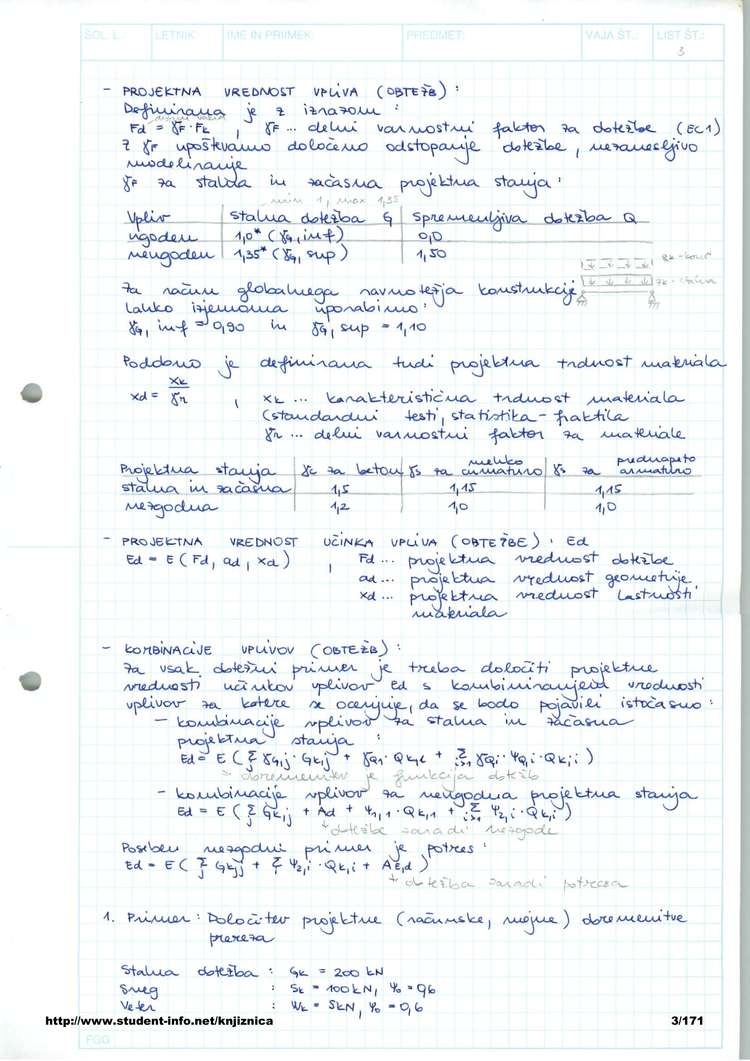 ŠOL. L.: LETNIK: IME IN PRIIMEK: PREDMET: VAJA ŠT.: LIST ŠT.:
3
- PROJEKTNA VREDNOST VPLIVA (OBTEŽB):
Definirana je z izrazom:
Fd = γF·Fk , γF ... delni varnostni faktor za obtežbe (EC1)
Z γF upoštevamo določeno odstopanje obtežbe, nezanesljivo
modeliranje
γF za stalna in začasna projektna stanja:
min 1, max 1,35
Vpliv | stalna obtežba G | spremenljiva obtežba Q
ugoden | 1,0* (γG,inf) | 0,0
neugoden | 1,35* (γG,sup) | 1,50
Za račun globalnega ravnotežja konstrukcije
lahko izjemoma uporabimo:
γG,inf = 0,90 in γG,sup = 1,10
Podobno je definirana tudi projektna trdnost materiala
xd = xk/γM , xk ... karakteristična trdnost materiala
(standardni testi, statistika - fraktila
γM ... delni varnostni faktor za materiale
Projektna stanja | γc za beton | γs za mehko armaturo | γs za prednapeto armaturo
stalna in začasna | 1,5 | 1,15 | 1,15
nezgodna | 1,2 | 1,0 | 1,0
- PROJEKTNA VREDNOST UČINKA VPLIVA (OBTEŽBE): Ed
Ed = E (Fd, ad, xd) , Fd ... projektna vrednost obtežbe
ad ... projektna vrednost geometrije
xd ... projektna vrednost lastnosti
materiala
- KOMBINACIJE VPLIVOV (OBTEŽB):
Za vsak obtežni primer je treba določiti projektne
vrednosti učinkov vplivov Ed s kombiniranjem vrednosti
vplivov za katere se ocenjuje, da se bodo pojavili istočasno:
- kombinacije vplivov za stalna in začasna
projektna stanja:
Ed = E (Σj γG,j·Gk,j + γQ1·Qk,1 + Σi>1 γQi·ψ0,i·Qk,i)
= obremenitev je funkcija obtežb
- kombinacije vplivov za nezgodna projektna stanja
Ed = E (Σj Gk,j + Ad + ψ1,1·Qk,1 + Σi>1 ψ2,i·Qk,i)
obtežbe zaradi nezgode
Poseben nezgodni primer je potres:
Ed = E (Σj Gk,j + Σi ψ2,i·Qk,i + AE,d)
obtežba zaradi potresa
1. Primer: Določitev projektne (računske, mejne) obremenitve
prereza
Stalna obtežba : Gk = 200 kN
Sneg : Sk = 100 kN, ψ0 = 0,6
Veter : Wk = 5kN, ψ0 = 0,6
http://www.student-info.net/knjiznica 3/171
FGG